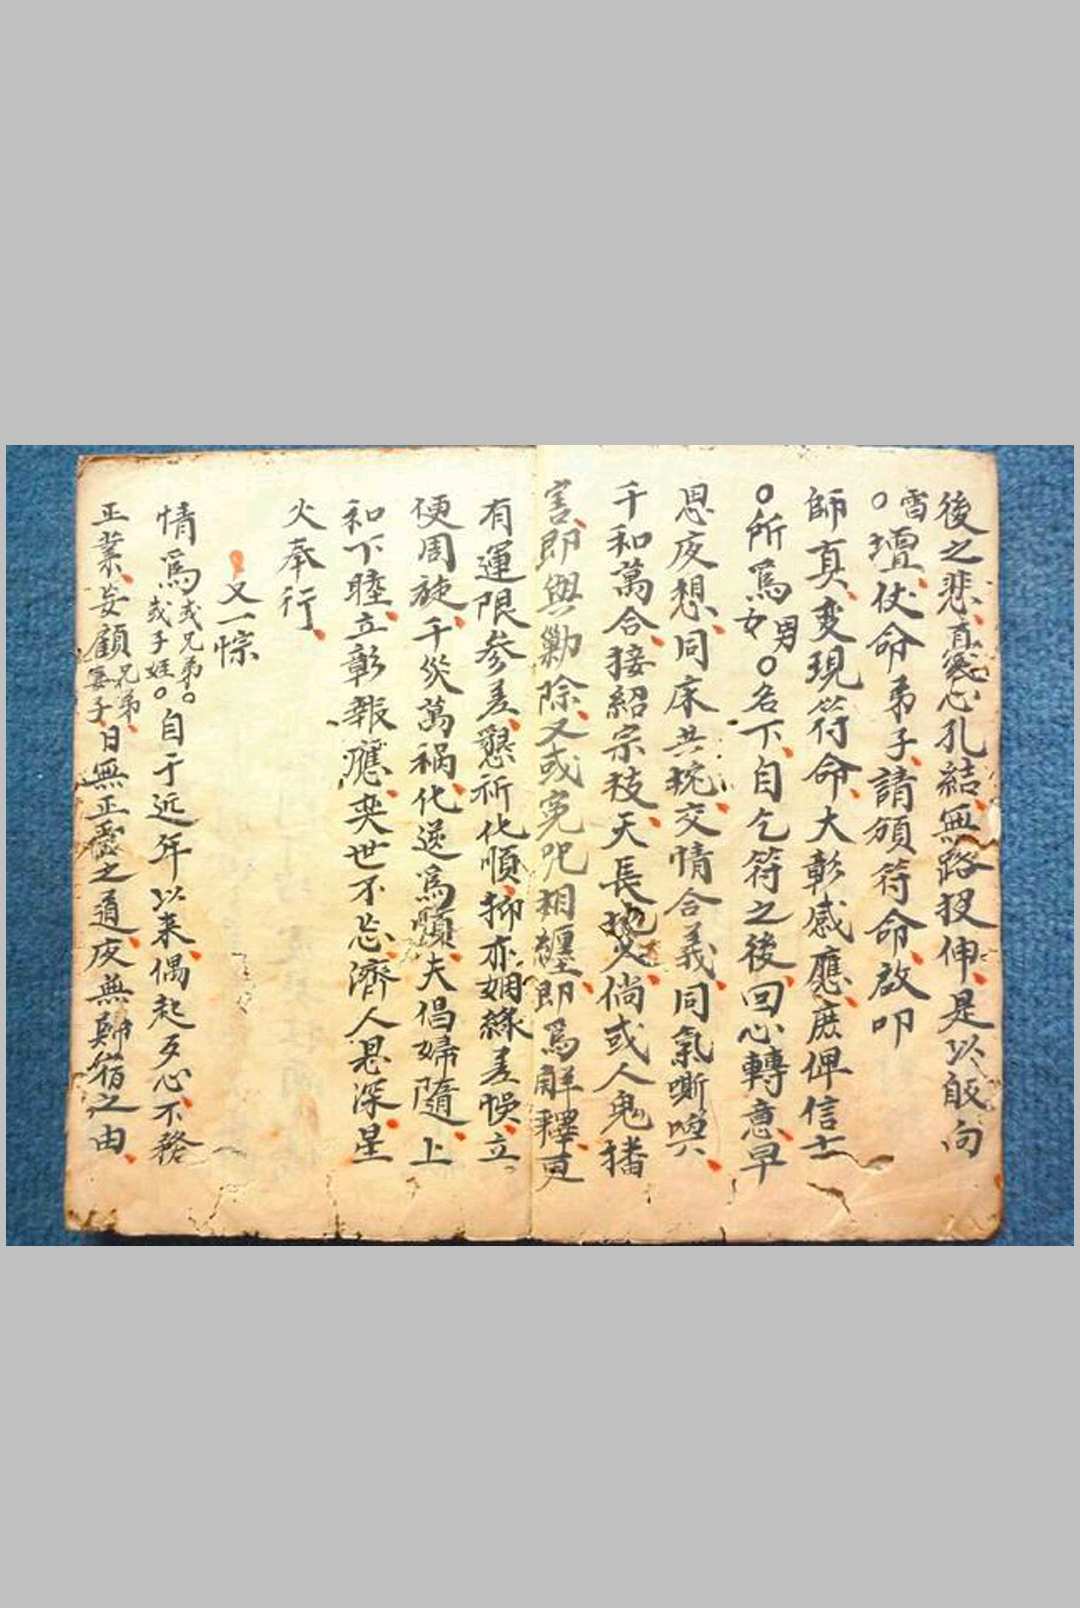 後之悲、直褰心孔結、無路投伸、是以皈向
雷○壇、仗命弟子、請頒符命、啟叩
師真、变現符命、大彰感應、庶俾信士
○所爲男女○名下、自乞符之後、回心轉意、早
思夜想、同床共枕、交情合義、同氣嘶喚、
千和萬合、接紹宗枝、天長地久、倘或人鬼播
害、即與勦除、又或寃咒相纏、即爲解釋、更
有運限參差、懇祈化順、抑亦姻緣差悮、立
便周旋、千災萬禍、化逆爲順、夫倡婦隨、上
和下睦、立彰報應、奕世不忘、濟人恩深、星
火奉行、
又一悰
情爲或兄弟○或子姪○自于近年以来、偶起歹心、不務
正業、妄顧兄弟妻子、日無正之道、夜無歸宿之由、